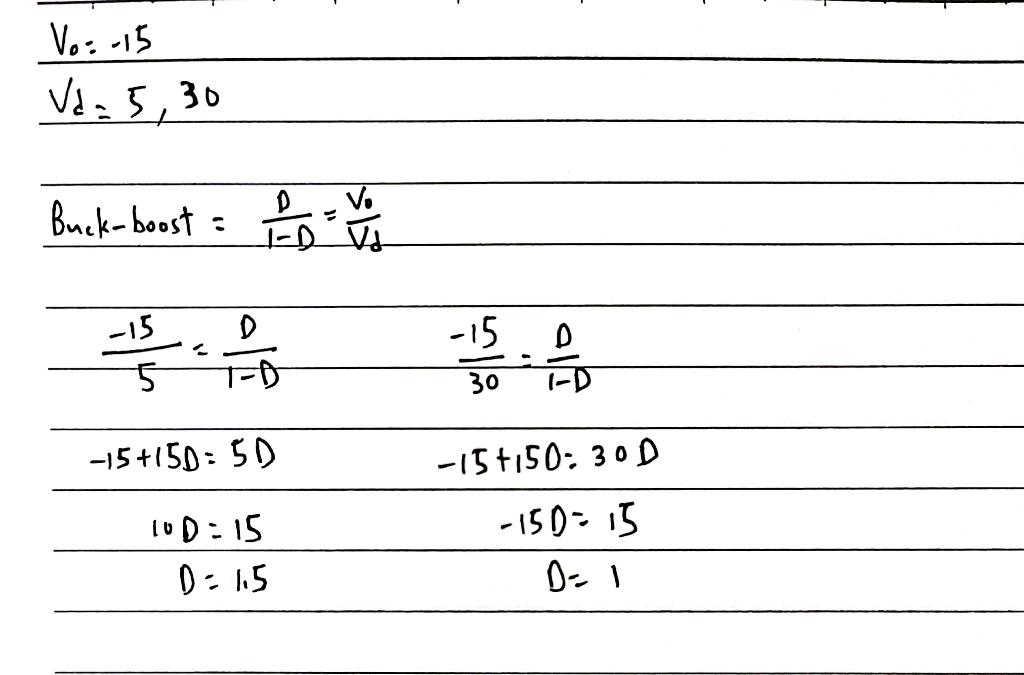 Vo = -15
Vd = 5, 30
Buck-boost = D/(1-D) = Vo/Vd
-15/5 = D/(1-D)    -15/30 = D/(1-D)
-15+15D = 5D    -15+15D = 30D
10D = 15    -15D = 15
D = 1.5    D = 1